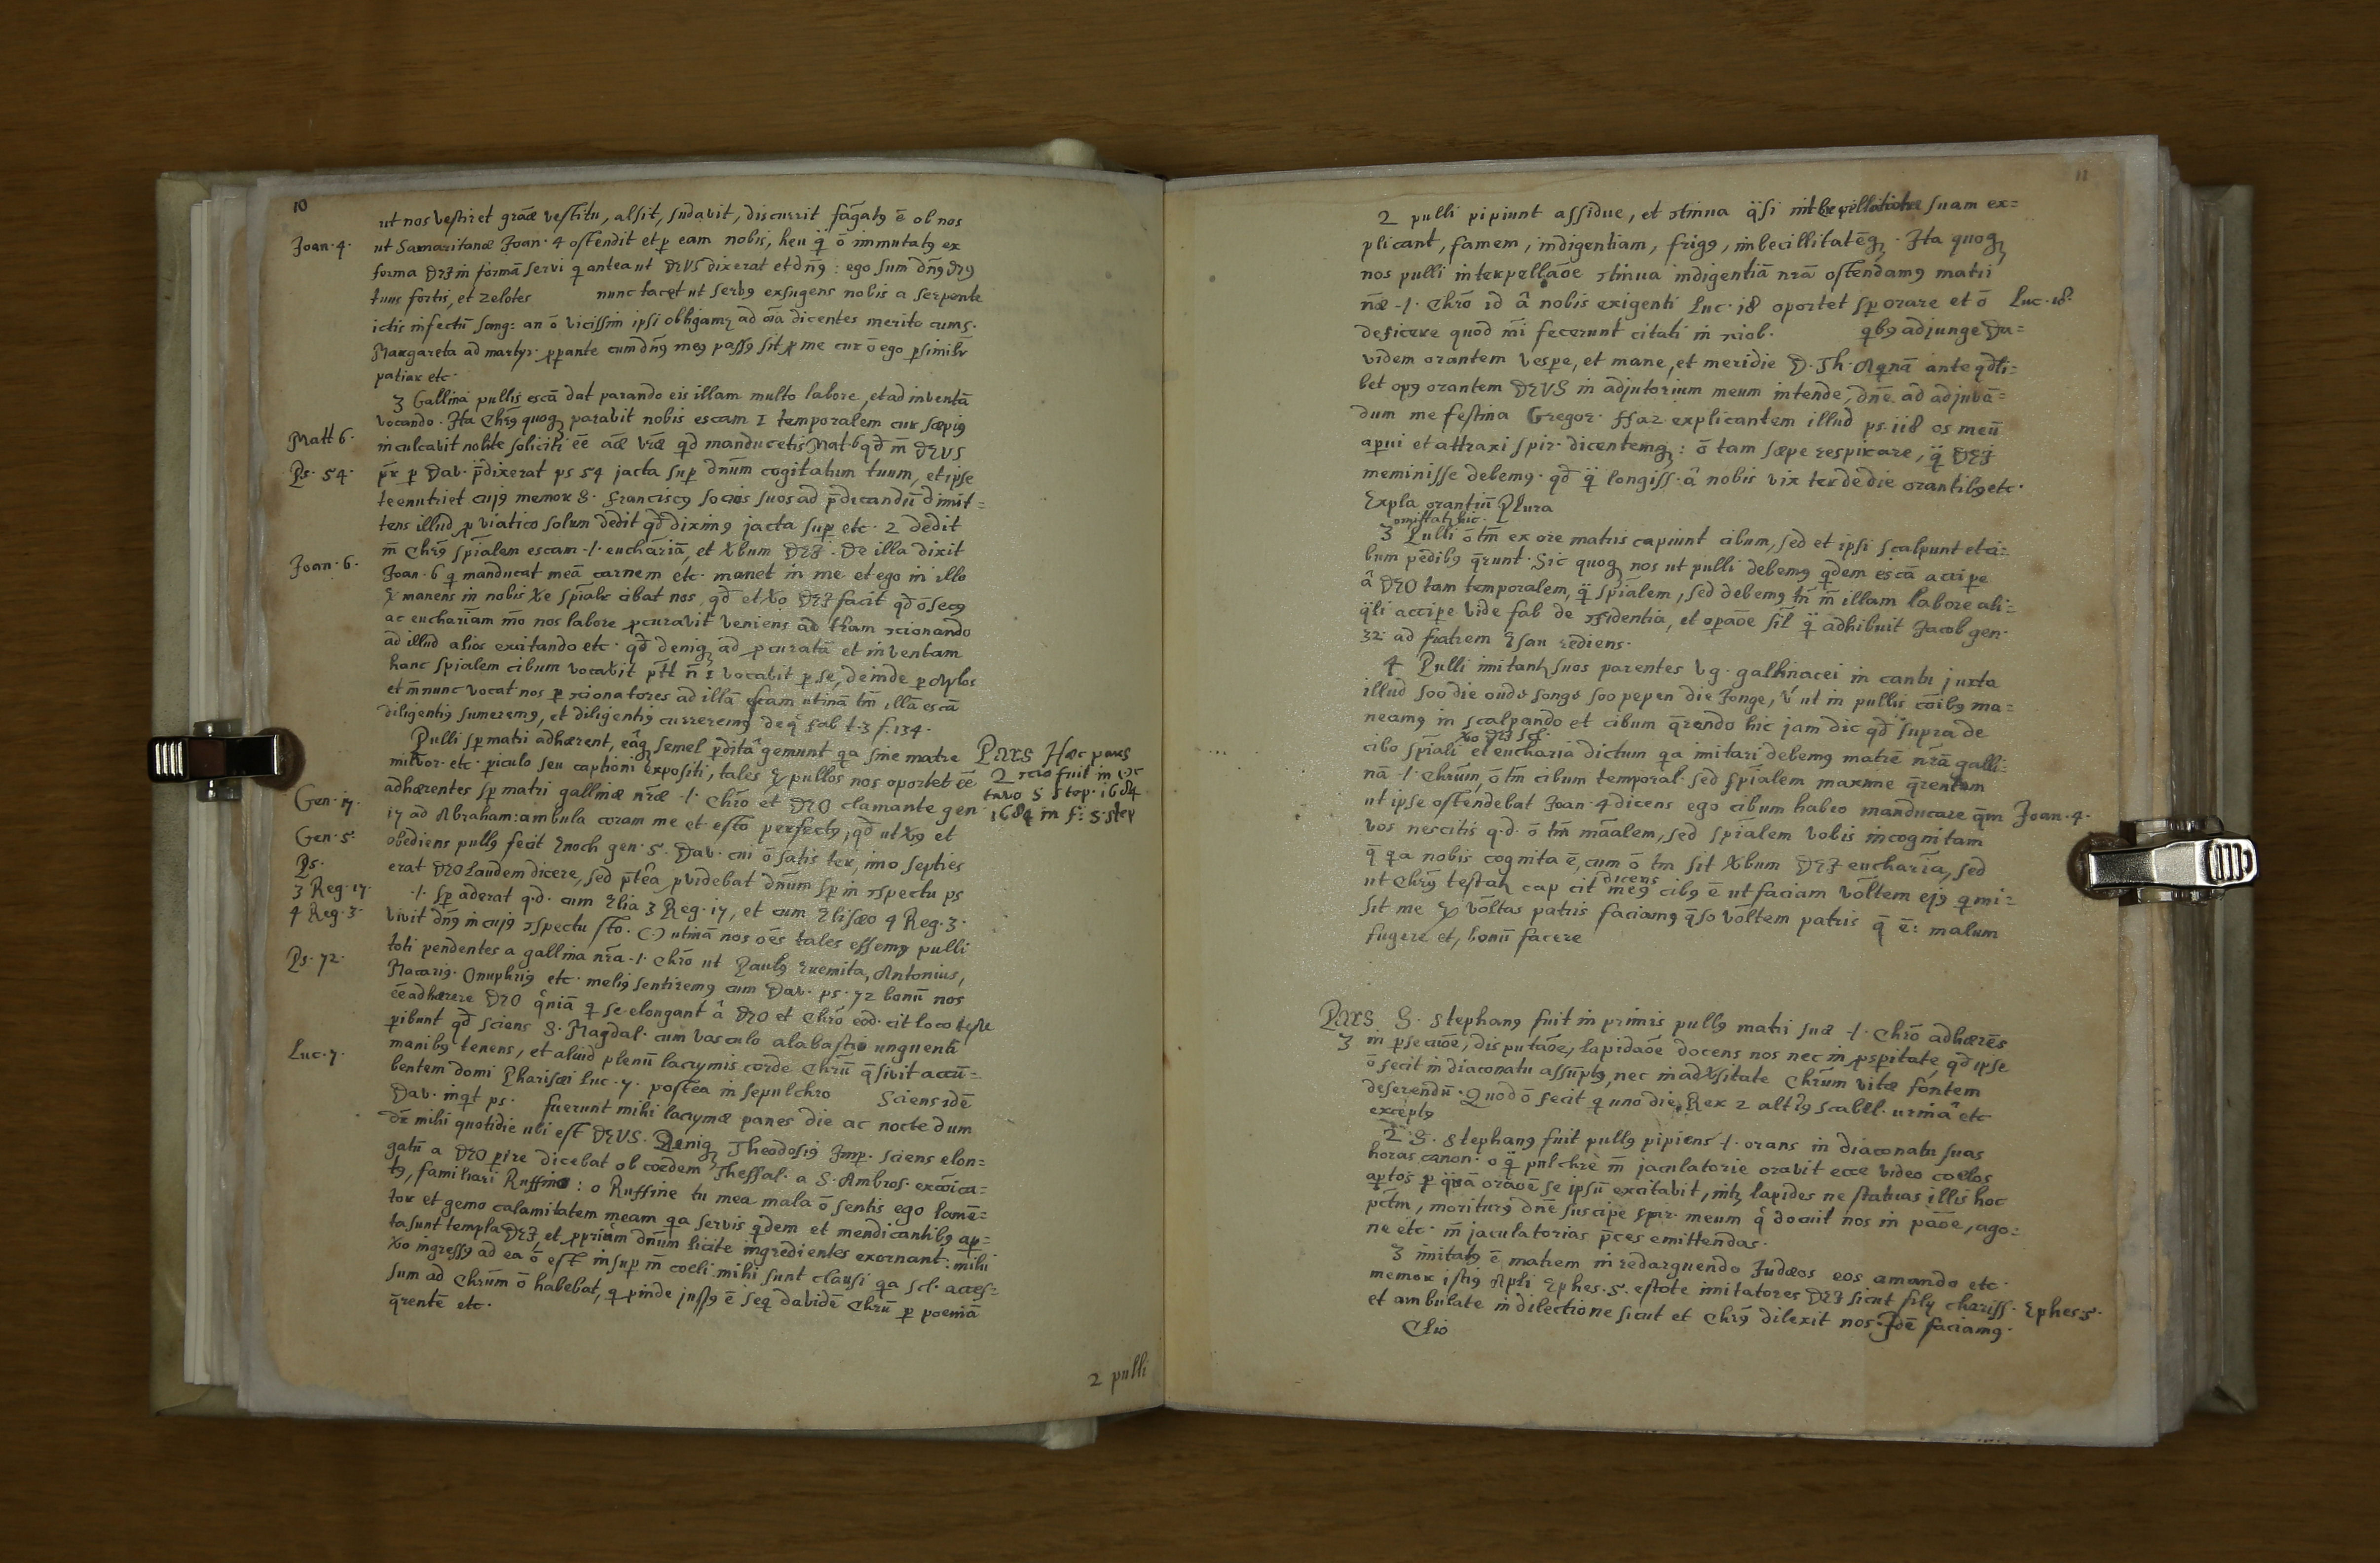 10
ut nos vestiret grãæ vestitu, alsit, sudavit, discurrit fãgatꝯ ē ob nos
Joan·4·
ut Samaritanæ Joan·4 ostendit et p eam nobis, heu q̃ ō immutatꝯ ex
forma DEI in formã servi q antea ut DEUS dixerat et dñꝯ: ego sum dñꝯ Dꝯ
tuus fortis, et zelotes nunc tacet ut servꝯ exsugens nobis a serpente
ictis infectũ sang: an ō vicissim ipsi obligamꝯ ad oĩa dicentes merito cum S·
Margareta ad martyr· pperante cum dñꝯ meꝯ passꝯ sit p me cur ō ego psimilr
patiar etc·
3 Gallina pullis escã dat parando eis illam multo labore, et ad inventã
vocando· Ita Chrꝯ quoqꝫ paravit nobis escam 1 temporalem cur sæpiꝯ
Matt 6·
inculcavit nolite soliciti ēe aĩæ vræ qd manducetis Mat·6 qd m̃ DEUS
Ps· 54·
pr p Dav· p̃dixerat ps 54 jacta sup dnũm cogitatum tuum, et ipse
te enutriet cujꝯ memor S· Franciscꝯ socios suos ad p̃dicandũ dimit=
tens illud p viatico solum dedit qd diximꝯ jacta sup etc· 2 dedit
m̃ Chrꝯ spĩalem escam ·/· euchariã, et Xbum DEI· De illa dixit
Joan·6·
Joan·6 q manducat meã carnem etc· manet in me et ego in illo
& manens in nobis Xe spĩalr cibat nos, qd et Xo DEI facit qd ō secꝯ
ac euchariam mō nos labore pcuravit veniens ad tram ꝯcionando
ad illud alios excitando etc· qd deniqꝫ ad pcuratã et inventam
hanc spĩalem cibum vocavit p̃tt ñ 1 vocavit p se, deinde p Aplos
et m̃ nunc vocat nos p ꝯcionatores ad illã escam utinã tm̃ illã escã
diligentiꝯ sumeremꝯ, et diligentiꝯ curreremꝯ de qᵃ fab t·3 f·134·
Pulli sp matri adhærent, eâqꝫ semel pditâ gemunt qa sine matre
milvor· etc· piculo seu captioni expositi, tales & pullos nos oportet ēe
adhærentes sp matri gallinæ nr̃æ ·/· Chrō et DEO clamante gen·
Pars Hæc pars
2 ꝯcio fuit in oc
tavo S Step· 1684
1689 in f: S·step
Gen·17·
17 ad Abraham: ambula coram me et esto perfectꝯ; qd ut Xꝯ et
Gen·5·
obediens pullꝯ fecit Enoch gen·5· Dav· cui ō satis ter, imo septies
Ps·
erat DEO laudem dicere, sed p̃teâ pvidebat dnũm sp in ꝯspectu ps
3 Reg·17·
·/· sp aderat q·d· cum Elia 3 Reg·17, et cum Elisæo 4 Reg·3·
4 Reg·3·
vivit dñꝯ in cujꝯ ꝯspectu sto· (·) utinã nos oēs tales essemꝯ pulli
toti pendentes a gallina nr̃a ·/· Chrō ut Paulꝯ Eremita, Antonius,
Ps·72·
Macariꝯ· Onuphriꝯ etc· meliꝯ sentiremꝯ cum Dav· ps·72 bonũ nos
ēe adhærere DEO qᵒniã q se elongant â DEO et Chrō eod· cit loco teste
pibunt qd sciens S· Magdal· cum vasculo alabastri unguenti
Luc·7·
manibꝯ tenens, et aliud plenũ lacymis corde Chrũ q̃sivit accũ=
bentem domi Pharisæi Luc·7· postea in sepulchro Sciens idē
Dav· inqt ps· fuerunt mihi lacrymæ panes die ac nocte dum
dr mihi quotidie ubi est DEUS· Deniqꝫ Theodosiꝯ Imp· sciens elon=
gatũ a DEO pire dicebat ob cædem Thessal· a S· Ambros· excõica=
tꝯ, familiari Ruffino: o Ruffine tu mea mala ō sentis ego lamē=
tor et gemo calamitatem meam qa servis qdem et mendicantibꝯ ap=
ta sunt templa DEI, et ppriũm dnũm licite ingredientes exornant· mihi
Xo ingressꝯ ad ea ō est insup m̃ coeli mihi sunt clausi qa scl· acces=
sum ad Chrũm ō habebat, q pinde jussꝯ ē seq davidē Chrũ p poenã
q̃rentē etc·
2 pulli
11
2 pulli pipiunt assidue, et ꝯtinua q̃si interpellatione suam ex=
plicant, famem, indigentiam, frigꝯ, imbecillitatēqꝫ· Ita quoqꝫ
nos pulli interpellãoe ꝯtinua indigentiã nr̃ã ostendamꝯ matri
ñæ ·/· Chrō id â nobis exigenti Luc·18 oportet sp orare et ō
Luc·18·
deficere quod mi fecerunt citati in ꝯiob· qbꝯ adjunge Da=
videm orantem vespe, et mane, et meridie D· Th· Aqnã ante qdli=
bet opꝯ orantem DEUS in adjutorium meum intende, dñe ad adjuvã=
dum me festina Gregor· Haz explicantem illud ps·118 os meũ
apui et attraxi spir· dicentemqꝫ: ō tam sæpe respirare, q̃ DEI
meminisse debemꝯ· qd q̃ longiss· â nobis vix ter de die orantibꝯ etc·
Expla orantiũ Plura
omittatꝫ hic·
3 Pulli ō tm̃ ex ore matris capiunt cibum, sed et ipsi scalpunt et ci=
bum pedibꝯ q̃runt· Sic quoqꝫ nos ut pulli debemꝯ qdem escã accipe
â DEO tam temporalem, q̃ spĩalem, sed debemꝯ tn̄ m̃ illam labore ali=
q̃li accipe vide fab de ꝯfidentia, et opaõe sil q̃ adhibuit Jacob gen·
32· ad fratrem Esau rediens·
4 Pulli imitantꝫ suos parentes vg· gallinacei in cantu juxta
illud soo die oude songe soo pepen die Jonge, V ut in pullis cõibꝯ ma=
neamꝯ in scalpando et cibum q̃rendo hic jam dic qd supra de
Xo DEI scl·
cibo spĩali et eucharia dictum qa imitari debemꝯ matrē nr̃ã galli=
nã ·/· Chrũm, ō tm̃ cibum temporal· sed spĩalem maxime q̃rentem
ut ipse ostendebat Joan·4 dicens ego cibum habeo manducare q̃m
Joan·4·
vos nescitis q·d· ō tm̃ mãalem, sed spĩalem vobis incognitam
q̃ qa nobis cognita ē, cum ō tm sit Xbum DEI eucharia, sed
dicens
ut Chrꝯ testatꝫ cap cit meꝯ cibꝯ ē ut faciam vōltem ejꝯ q mi=
sit me & vōltas patris faciamꝯ q̃so vōltem patris q̃ ē: malum
fugere et, bonũ facere
Pars
3
S· Stephanꝯ fuit in primis pullꝯ matri suæ ·/· Chrō adhærēs
in psecuõe, disputãoe, lapidãoe docens nos nec in pspitate, qd ipse
ō fecit in diaconatu assũptꝯ, nec in adXsitate Chrũm vitæ fontem
deserendũ· Quod ō fecit q uno die, Rex 2 altiꝯ scabll· urniâ etc
exceptꝯ
2 S· Stephanꝯ fuit pullꝯ pipiens ·/· orans in diaconatu suas
horas canon· o q̃ pulchrè m̃ jaculatorie oravit ecce video coelos
aptos p q̃uã oraõē se ipsũ excitavit, intꝫ lapides ne statuas illis hoc
pctm, moriturꝯ dñe suscipe spir· meum qᵒ docuit nos in pãoe, ago=
ne etc· m̃ jaculatorias p̃ces emittendas·
3 imitatꝯ ē matrem in redarguendo Judæos eos amando etc·
memor istiꝯ Apli Ephes·5· estote imitatores DEI sicut filij chariss·
Ephes·5·
et ambulate in dilectione sicut et Chrꝯ dilexit nos· Idē faciamꝯ·
Clio